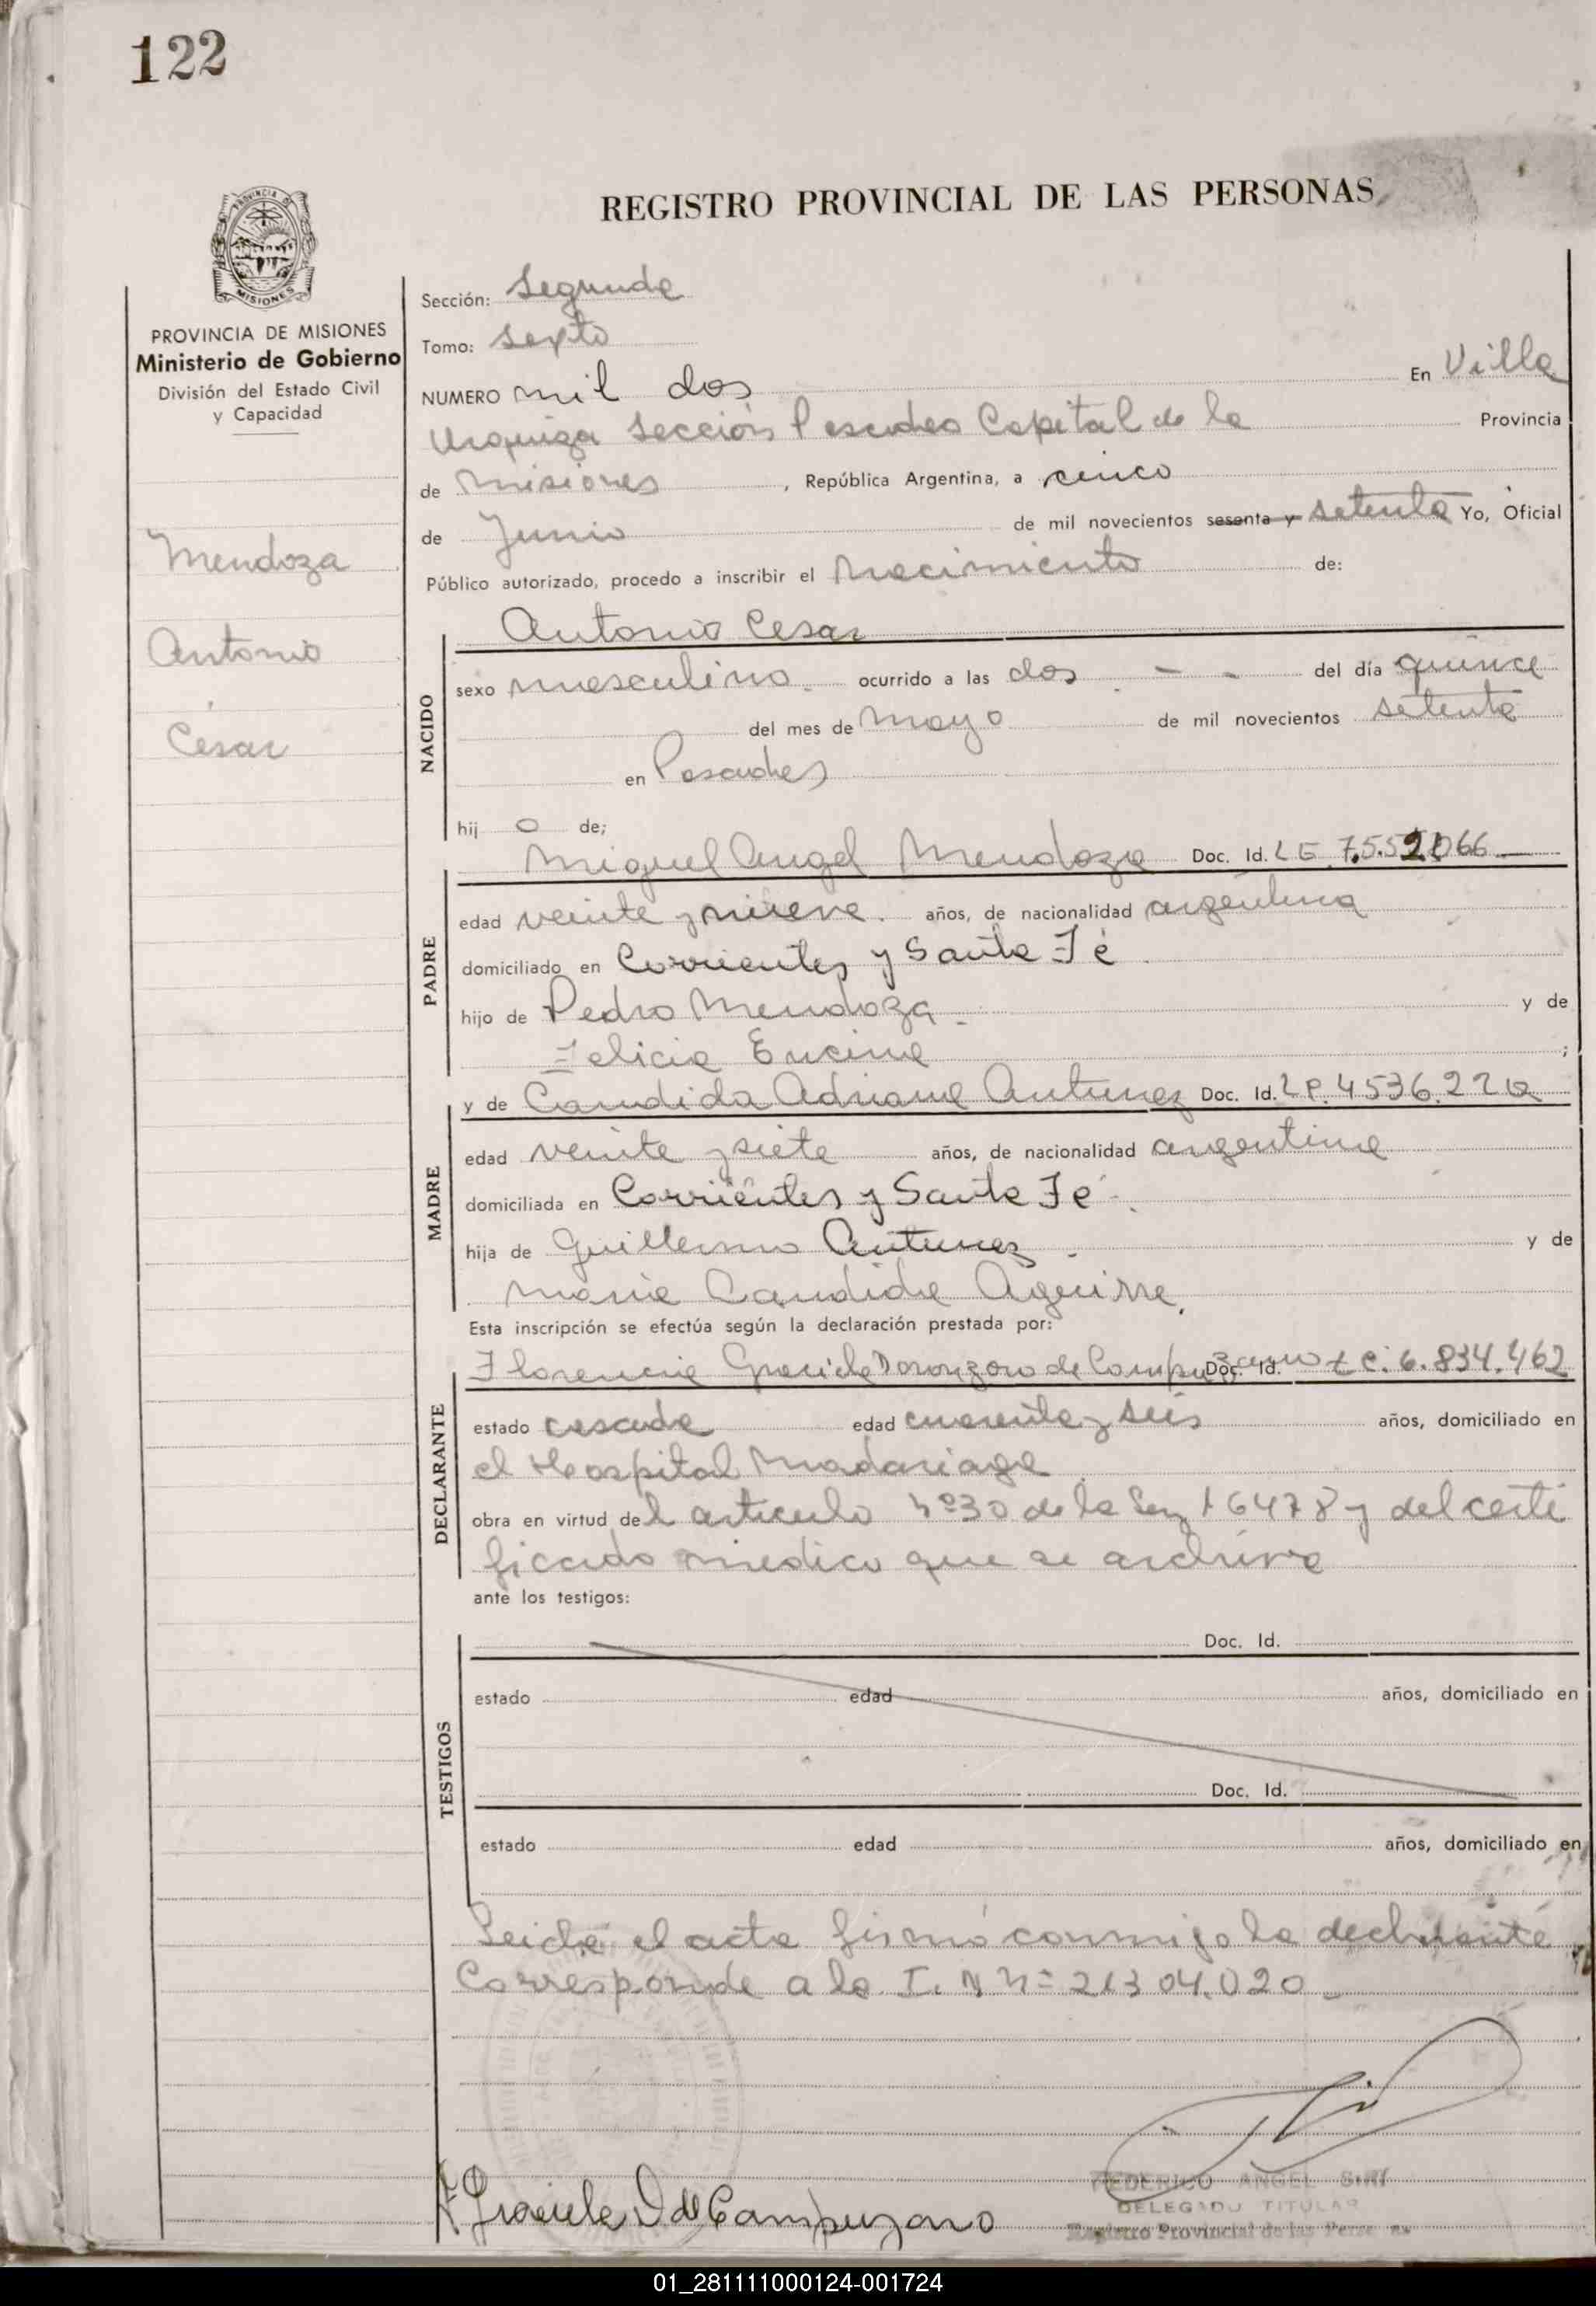 122
REGISTRO PROVINCIAL DE LAS PERSONAS
PROVINCIA DE MISIONES
Ministerio de Gobierno
División del Estado Civil
y Capacidad
Mendoza
Antonio
César
Sección: Segunda
Tomo: Sexto
NUMERO mil dos En Villa
Urquiza Sección Posadas Capital de la Provincia
de Misiones, República Argentina, a cinco
de Junio de mil novecientos sesenta y setenta Yo, Oficial
Público autorizado, procedo a inscribir el Nacimiento de:
NACIDO
Antonio Cesar
sexo masculino. ocurrido a las dos - - del día quince
del mes de mayo de mil novecientos setenta
en Posadas
hij o de;
PADRE
Miguel Angel Mendoza Doc. Id. LE 7.5.5 066
edad veinte y nueve. años, de nacionalidad argentina
domiciliado en Corrientes y Santa Fé
hijo de Pedro Mendoza - y de
Felicia Encina ;
MADRE
y de Candida Adriana Antunez Doc. Id. LP. 4536.22
edad veinte y siete años, de nacionalidad argentina
domiciliada en Corrientes y Santa Fe
hija de Guillermo Antunez - y de
Maria Candida Aguirre.
Esta inscripción se efectúa según la declaración prestada por:
DECLARANTE
Florencia Graciela Doronzoro de Campuzano Doc. Id. LC. 6.834.462
estado casada edad cuarenta y seis años, domiciliado en
el Hospital Madariaga
obra en virtud del articulo nº30 de la Ley 16478 y del certi
ficado medico que se archiva
ante los testigos:
TESTIGOS
Doc. Id.
estado edad años, domiciliado en
Doc. Id.
estado edad años, domiciliado en
Leida el acta firmó conmigo la declarante
Corresponde a la I. N n= 21304.020 -
F Graciela D de Campuzano
FEDERICO ANGEL SIRI
DELEGADO TITULAR
Registro Provincial de las Personas
01_281111000124-001724